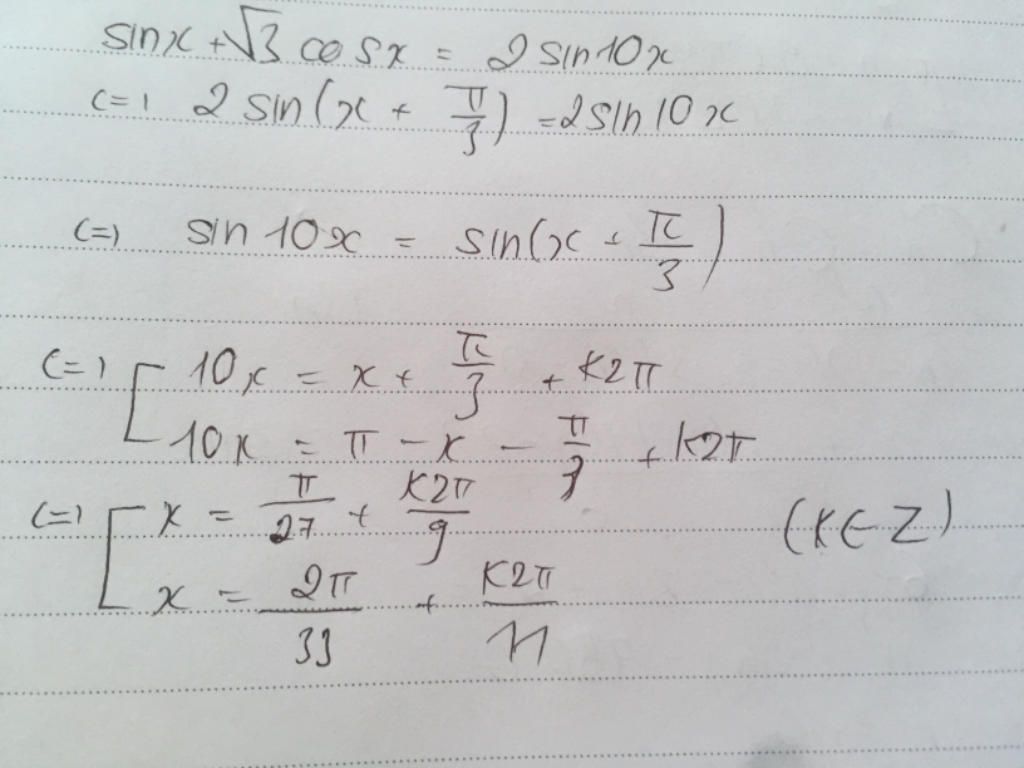 sinx + √3 cosx = 2 sin10x
(=) 2 sin(x + π/3) = 2 sin 10x
(=) sin 10x = sin(x + π/3)
(=) [ 10x = x + π/3 + K2π
10x = π - x - π/3 + K2π
(=) [ x = π/27 + K2π/9 (K∈Z)
x = 2π/33 + K2π/11